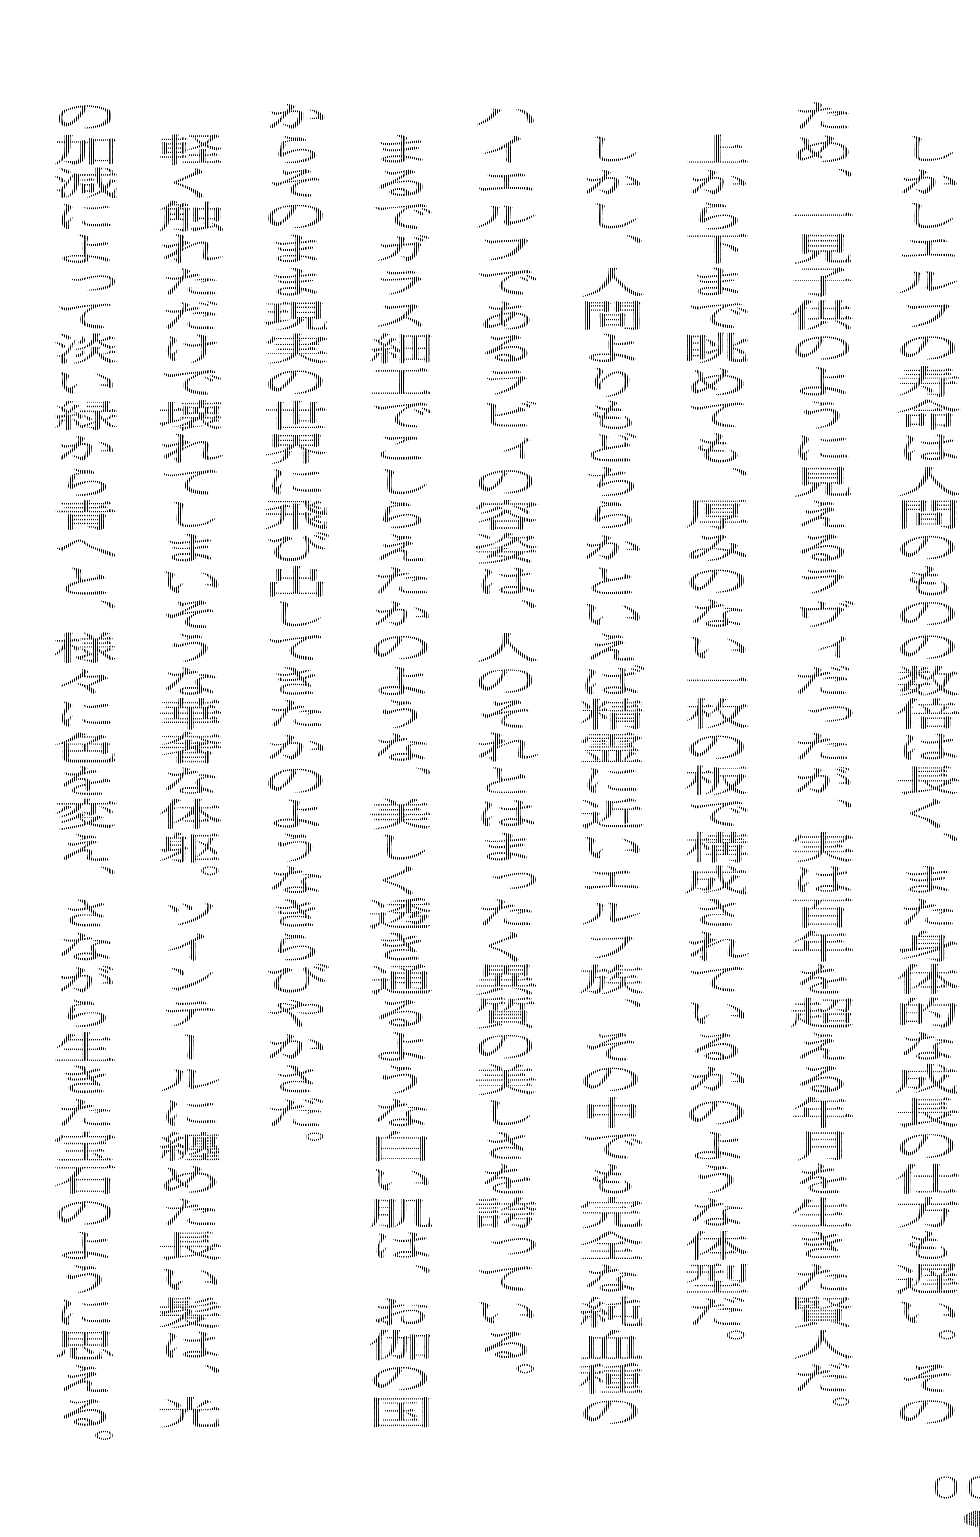 しかしエルフの寿命は人間のものの数倍は長く、また身体的な成長の仕方も遅い。その
ため、一見子供のように見えるラヴィだったが、実は百年を超える年月を生きた賢人だ。
　上から下まで眺めても、厚みのない一枚の板で構成されているかのような体型だ。
　しかし、人間よりもどちらかといえば精霊に近いエルフ族、その中でも完全な純血種の
ハイエルフであるラビィの容姿は、人のそれとはまったく異質の美しさを誇っている。
　まるでガラス細工でこしらえたかのような、美しく透き通るような白い肌は、お伽の国
からそのまま現実の世界に飛び出してきたかのようなきらびやかさだ。
　軽く触れただけで壊れてしまいそうな華奢な体躯。ツインテールに纏めた長い髪は、光
の加減によって淡い緑から青へと、様々に色を変え、さながら生きた宝石のように思える。